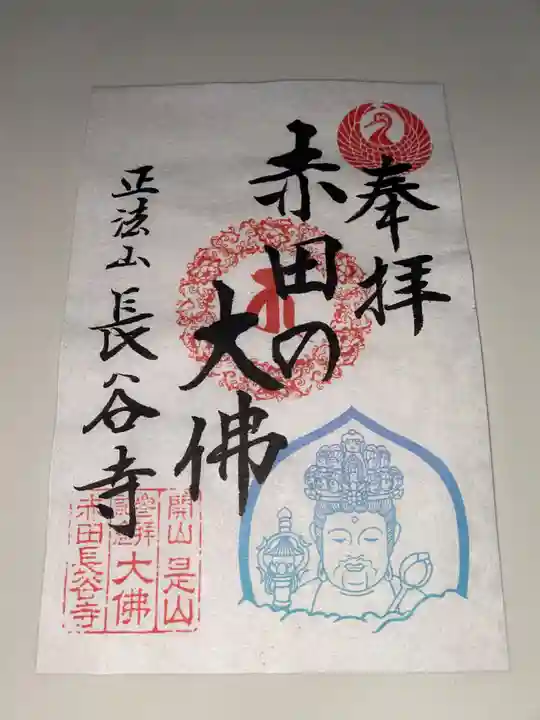 奉拝
赤田の
大佛
正法山 長谷寺
開山 是山
參拝記念
大佛
赤田長谷寺